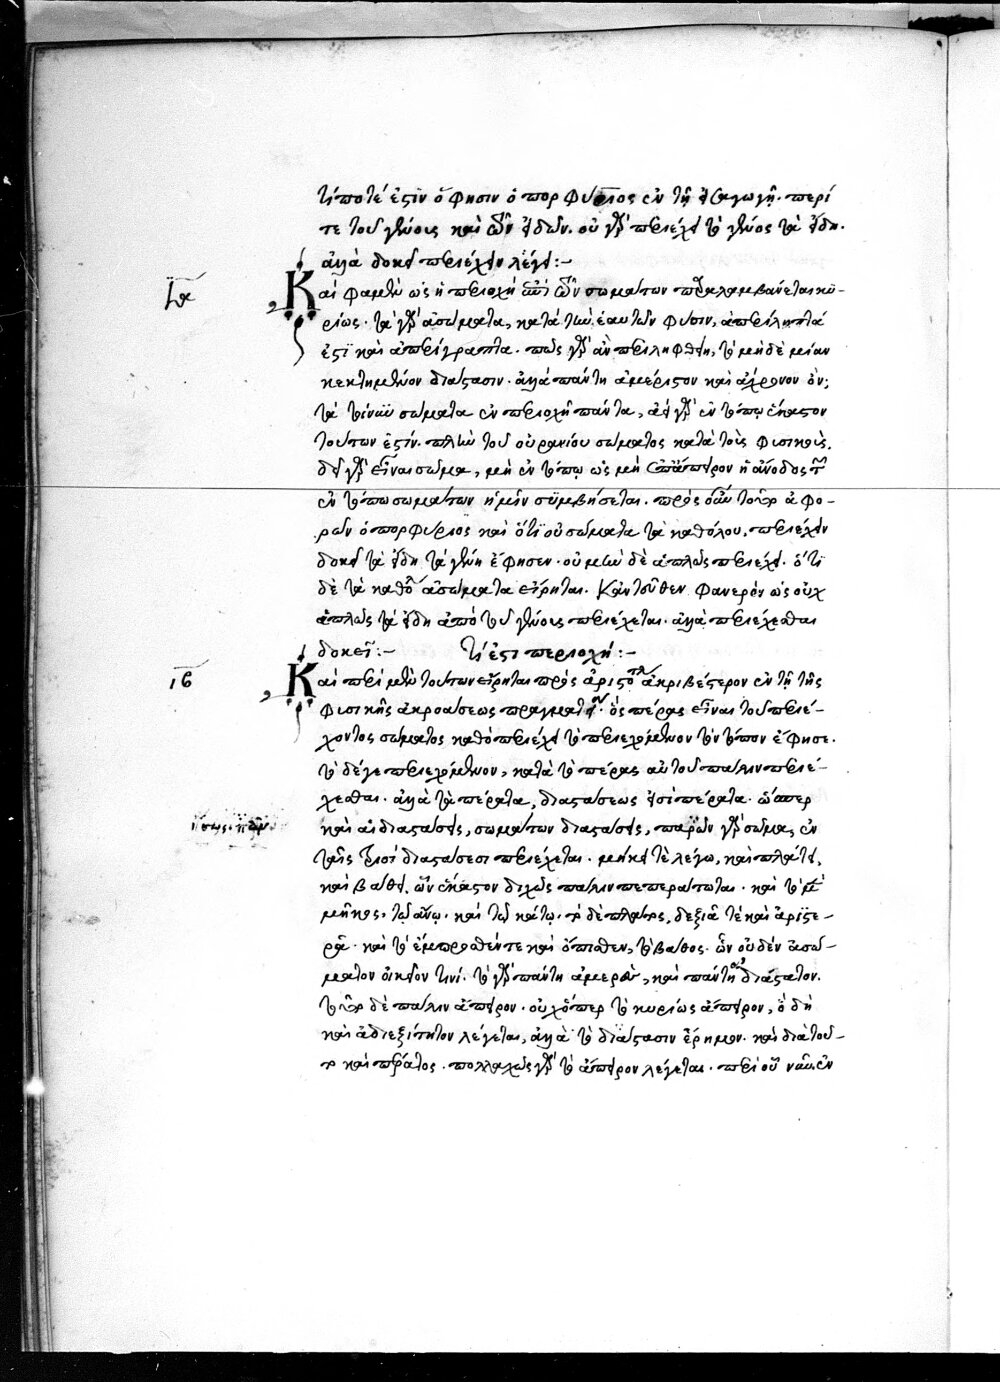 τί ποτέ ἐστιν ὅ φησιν ὁ πορφύριος ἐν τῇ εἰσαγωγῇ. περί
τε τοῦ γένους καὶ τῶν εἰδῶν. οὐ γὰρ περιέχει τὸ γένος τὰ εἴδη.
ἀλλὰ δοκεῖ περιέχειν λέγει:-
ια
Καὶ φαμὲν ὡς ἡ περιοχὴ ἐπὶ τῶν σωμάτων παραλαμβάνεται κυ-
ρίως. τὰ γὰρ ἀσώματα, κατὰ τὴν ἑαυτῶν φύσιν, ἀπερίληπτά
ἐστι καὶ ἀπερίγραπτα. πῶς γὰρ ἂν περιληφθείη, τὸ μηδὲ μίαν
κεκτημένον διάστασιν. ἀλλὰ πάντη ἀμέριστον καὶ ἄχρονον ὄν;
τὰ τοίνυν σώματα ἐν περιοχῇ πάντα, ἀεὶ γὰρ ἐν τόπῳ ἕκαστον
τούτων ἐστίν. πλὴν τοῦ οὐρανίου σώματος κατὰ τοὺς φυσικούς.
δεῖ γὰρ εἶναι σῶμα, μὴ ἐν τόπῳ ὡς μὴ ἐπ' ἄπειρον ἡ ἄνοδος τῶν
ἐν τόπῳ σωμάτων ἡμῖν συμβήσεται. πρὸς οὖν τοῦτο ἀφο-
ρῶν ὁ πορφύριος καὶ ὅτι οὐ σώματα τὰ καθόλου, περιέχειν
δοκεῖ τὰ εἴδη τὰ γένη ἔφησεν. οὐ μὴν δὲ ἁπλῶς περιέχει. ὅτι
δὲ τὰ καθόλου ἀσώματα εἴρηται. Κἀντεῦθεν φανερὸν ὡς οὐχ
ἁπλῶς τὰ εἴδη ἀπὸ τοῦ γένους περιέχεται. ἀλλὰ περιέχεσθαι
δοκεῖ:- Τί ἐστι περιοχή:-
ιβ
Καὶ περὶ μὲν τούτων εἴρηται πρὸς ἀριστοτέλους ἀκριβέστερον ἐν τῇ τῆς
φυσικῆς ἀκροάσεως πραγματείᾳ. ὃς πέρας εἶναι τοῦ περιέ-
χοντος σώματος καθὸ περιέχει τὸ περιεχόμενον τὸν τόπον ἔφησε.
τὸ δέ γε περιεχόμενον, κατὰ τὸ πέρας αὐτοῦ πάλιν περιέ-
χεσθαι. ἀλλὰ τὰ πέρατα, διαστάσεως εἰσὶ πέρατα. ὥσπερ
καὶ αἱ διαστάσεις, σωμάτων διαστάσεις, πᾶν γὰρ σῶμα, ἐν
ταῖς τρισὶ διαστάσεσι περιέχεται. μήκει τὲ λέγω, καὶ πλάτει,
καὶ βάθει. ὧν ἕκαστον διχῶς πάλιν πεπεράτωται. καὶ τὸ μὲν
μῆκος, τῷ ἄνω. καὶ τῷ κάτω. τὸ δὲ πλάτος, δεξιᾷ τὲ καὶ ἀριστε-
ρᾷ. καὶ τὸ ἔμπροσθέν τε καὶ ὄπισθεν, τὸ βάθος. ὧν οὐδὲν ἀσω-
μάτων οἰκεῖον τινί. τὸ γὰρ πάντη ἀμερὲς, καὶ πάντη ἀδιάστατον.
τοῦτο δὲ πάλιν ἄπειρον. οὐχ ὅπερ τὸ κυρίως ἄπειρον, ὃ δὴ
καὶ ἀδιεξίτητον λέγεται, ἀλλὰ τὸ διάστασιν ἔρημον. καὶ διὰ τοῦ-
το καὶ πέρατος. πολλαχῶς γὰρ τὸ ἄπειρον λέγεται. περὶ οὗ νῦν ἐν